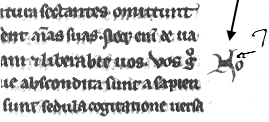 ntur sectantes omittunt
dent aĩas suas. sicq; eni̅ de ua
am & liberabit uos. Vos g̊
ue abscondita sunt a sapien
sunt sedula cogitatione versa